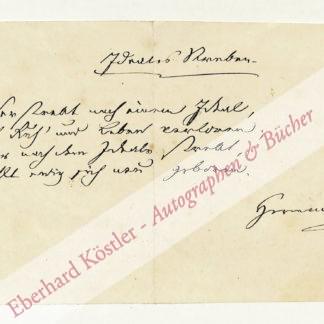 Ideales Streben.
strebt nach einem Ideal,
und Leben verloren,
nach dem Ideale strebt,
ewig sich neu geboren.
Eberhard Köstler - Autographen & Bücher